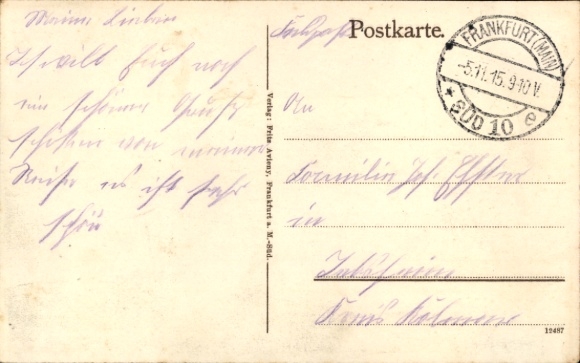 Meine Lieben
Ich will Euch noch
ein schönen Gruß
schicken von meiner
Reise es ist sehr
schön
Verlag: Fritz Aviony, Frankfurt a. M.-Süd.
Feldpost
Postkarte.
FRANKFURT (MAIN)
-5.11.15.9-10 V.
* SÜD 10 e
An
Familie Jos.
in
Kreis
12487